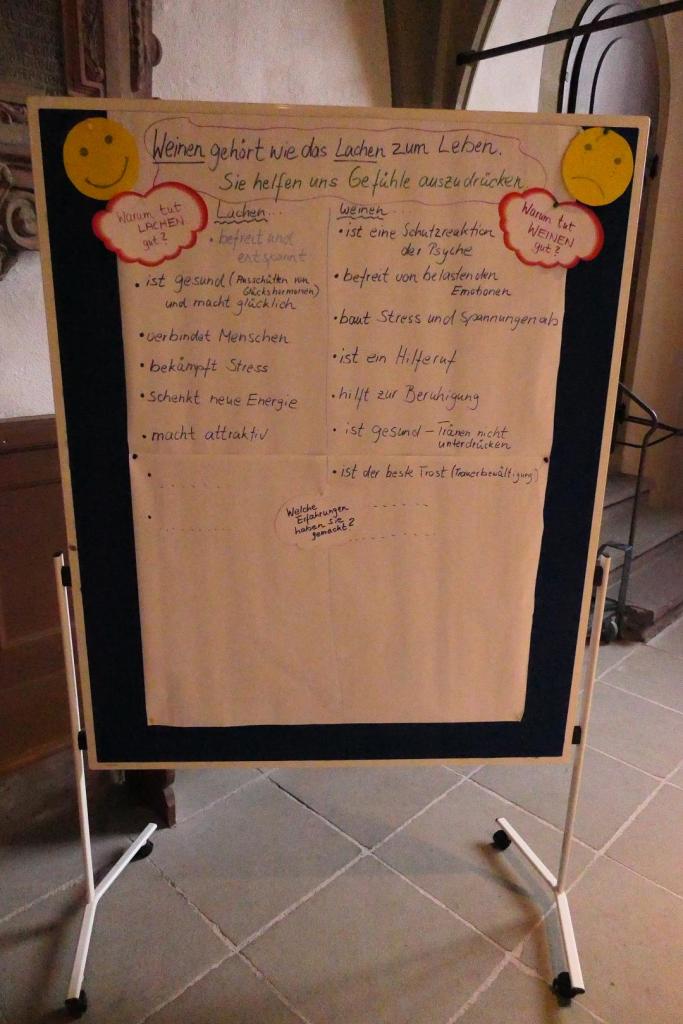 Weinen gehört wie das Lachen zum Leben.
Sie helfen uns Gefühle auszudrücken
Warum tut
LACHEN
gut?
Lachen...
• befreit und
entspannt
• ist gesund (Ausschütten von
Glückshormonen)
und macht glücklich
• verbindet Menschen
• bekämpft Stress
• schenkt neue Energie
• macht attraktiv
Warum tut
WEINEN
gut?
weinen...
• ist eine Schutzreaktion
der Psyche
• befreit von belastenden
Emotionen
• baut Stress und Spannungen ab
• ist ein Hilferuf
• hilft zur Beruhigung
• ist gesund - Tränen nicht
unterdrücken
• ist der beste Trost (Trauerbewältigung)
Welche
Erfahrungen
haben sie
gemacht?